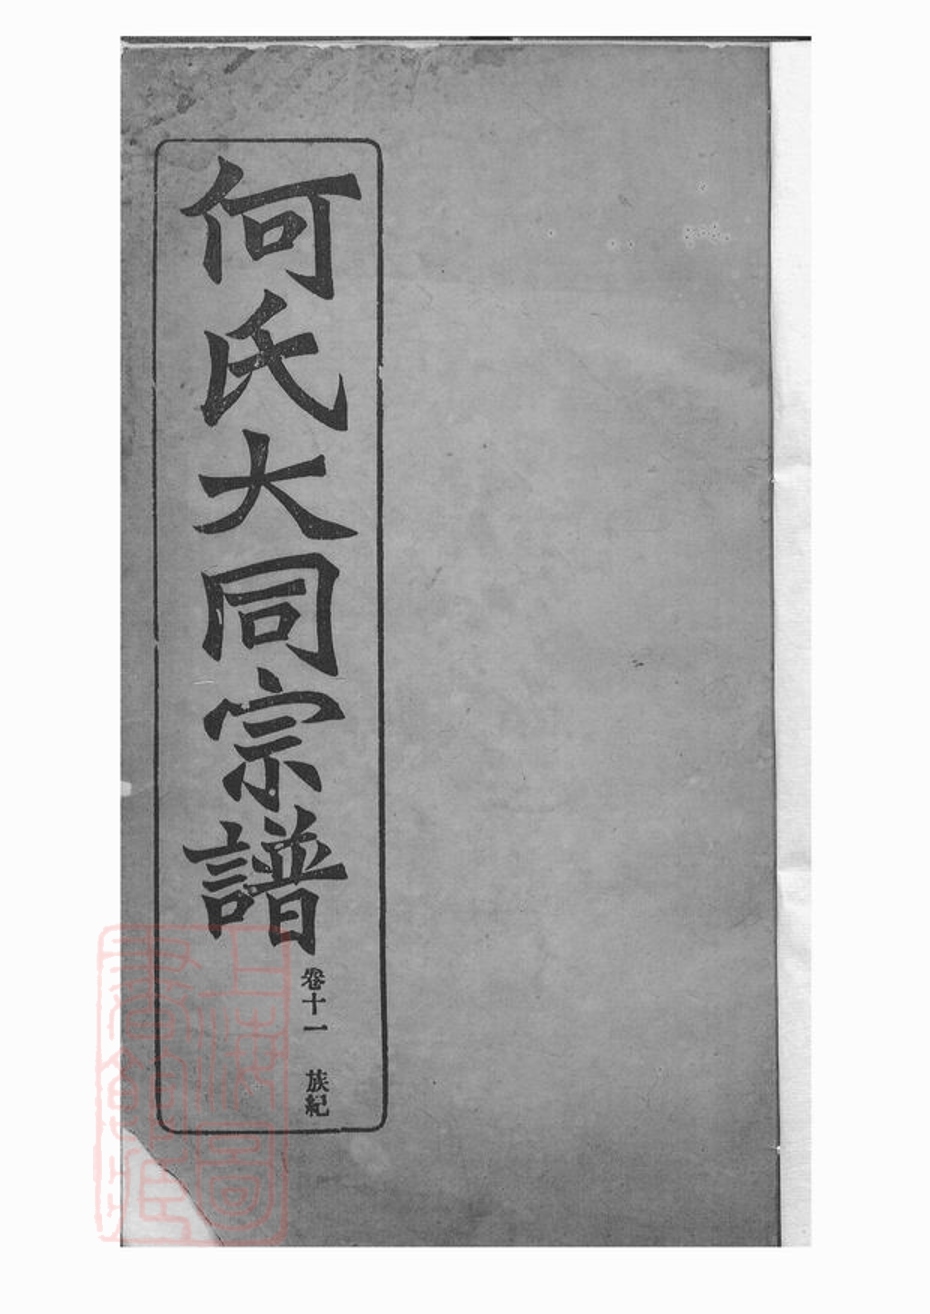 何氏大同宗譜
卷十一 族紀
上海圖書館藏